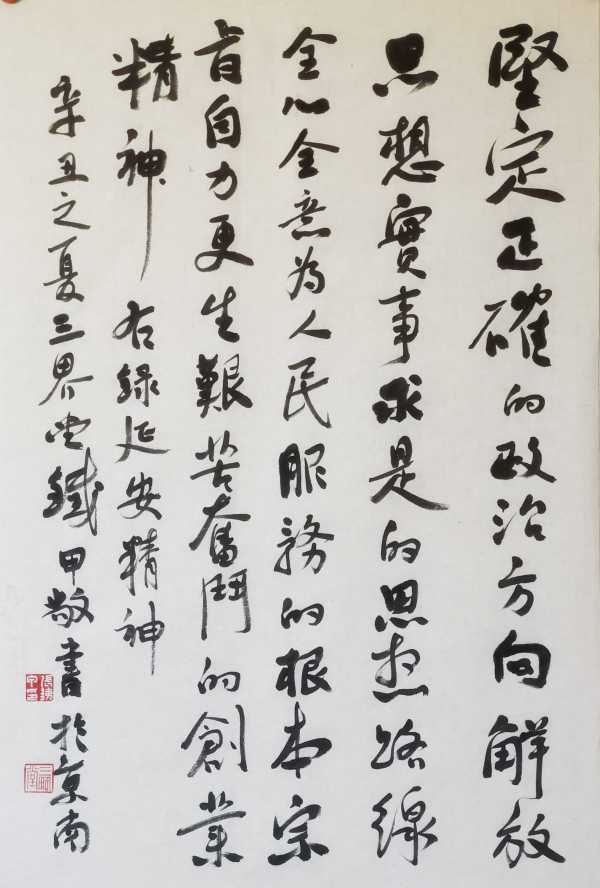 堅定正確的政治方向解放
思想實事求是的思想路線
全心全意為人民服務的根本宗
旨自力更生艱苦奮鬥的創業
精神 右錄延安精神
辛丑之夏三界堂鐵甲敬書於京南